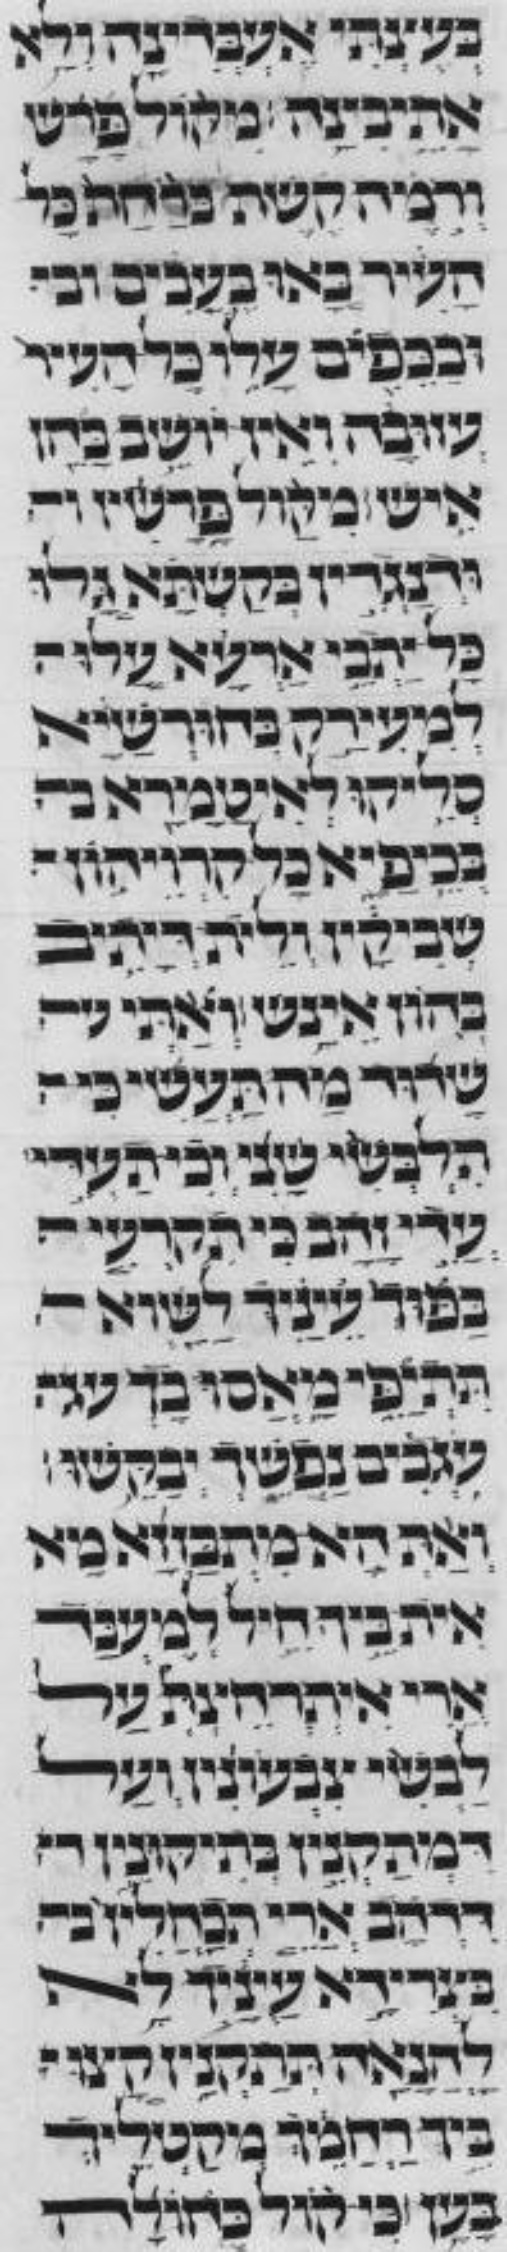 בְּעֵיצָתִי אַעְבְּרִינָה וְלָא
אֲתִיבִינַהּ׃ מִקּוֹל פָּרָשׁ
וְרֹמֵה קֶשֶׁת בֹּרַחַת כָּל
הָעִיר בָּאוּ בֶּעָבִים ובי
וּבַכֵּפִים עָלוּ כָּל הָעִיר
עֲזוּבָה וְאֵין יוֹשֵׁב בָּהֵן
אִישׁ׃ מִקָּול פָּרָשִׁין וד
וּדְנַגְדִין בְּקַשְׁתָּא גָּלוּ
כָּל יָתְבֵי אַרְעָא עֲלוּ ה
לְמֵיעֲירַק בְּחוּרְשַׁיָּא
סְלִיקוּ לְאִיטַמָרָא בה
בְּכֵיפַיָּא כָּל קִרְוֵיהוֹן
שְׁבִיקָין וְלֵית דְּיָתֵיב
בְּהוֹן אֵינָשׁ׃ וְאַתְּי עה
שָׁדוּד מַה תַּעֲשִׂי כִּי ה
תִלְבְּשִׁי שָׁנִי וְכִי תַעְדִּי
עֲדִי זָהָב כִּי תִקְרְעִי ה
בַפּוּךְ עֵינַיִךְ לַשָּׁוְא ה
תִּתְיַפִּי מָאֲסוּ בָךְ עגי
עֹגְבִים נַפְשֵׁךְ יְבַקֵּשׁוּ׃
וְאַתְּ הָא מִתְבַּזְּזָא מָא
אִית בֵּיךְ חֵיל לְמֶעְבַּד
אֲרֵי אִיתְרְחֵיצְתְּ עַל
לָבְשֵׁי צִבְעוֹנִין וְעַל
דִּמְתַקְּנִין בְּתִיקּוּנִין די
דִּדְהַב אֲרֵי תְּכַחֲלִין בה
בַּצְּדִידָא עֵינָיִךְ לא
לַהֲנָאָה תְּתַקְּנִין קָצוּ
בִיךְ רָחֲמַךְ מִקַּטְלִיךְ
בָּעַן׃ כִּי קוֹל כְּחוֹלָה